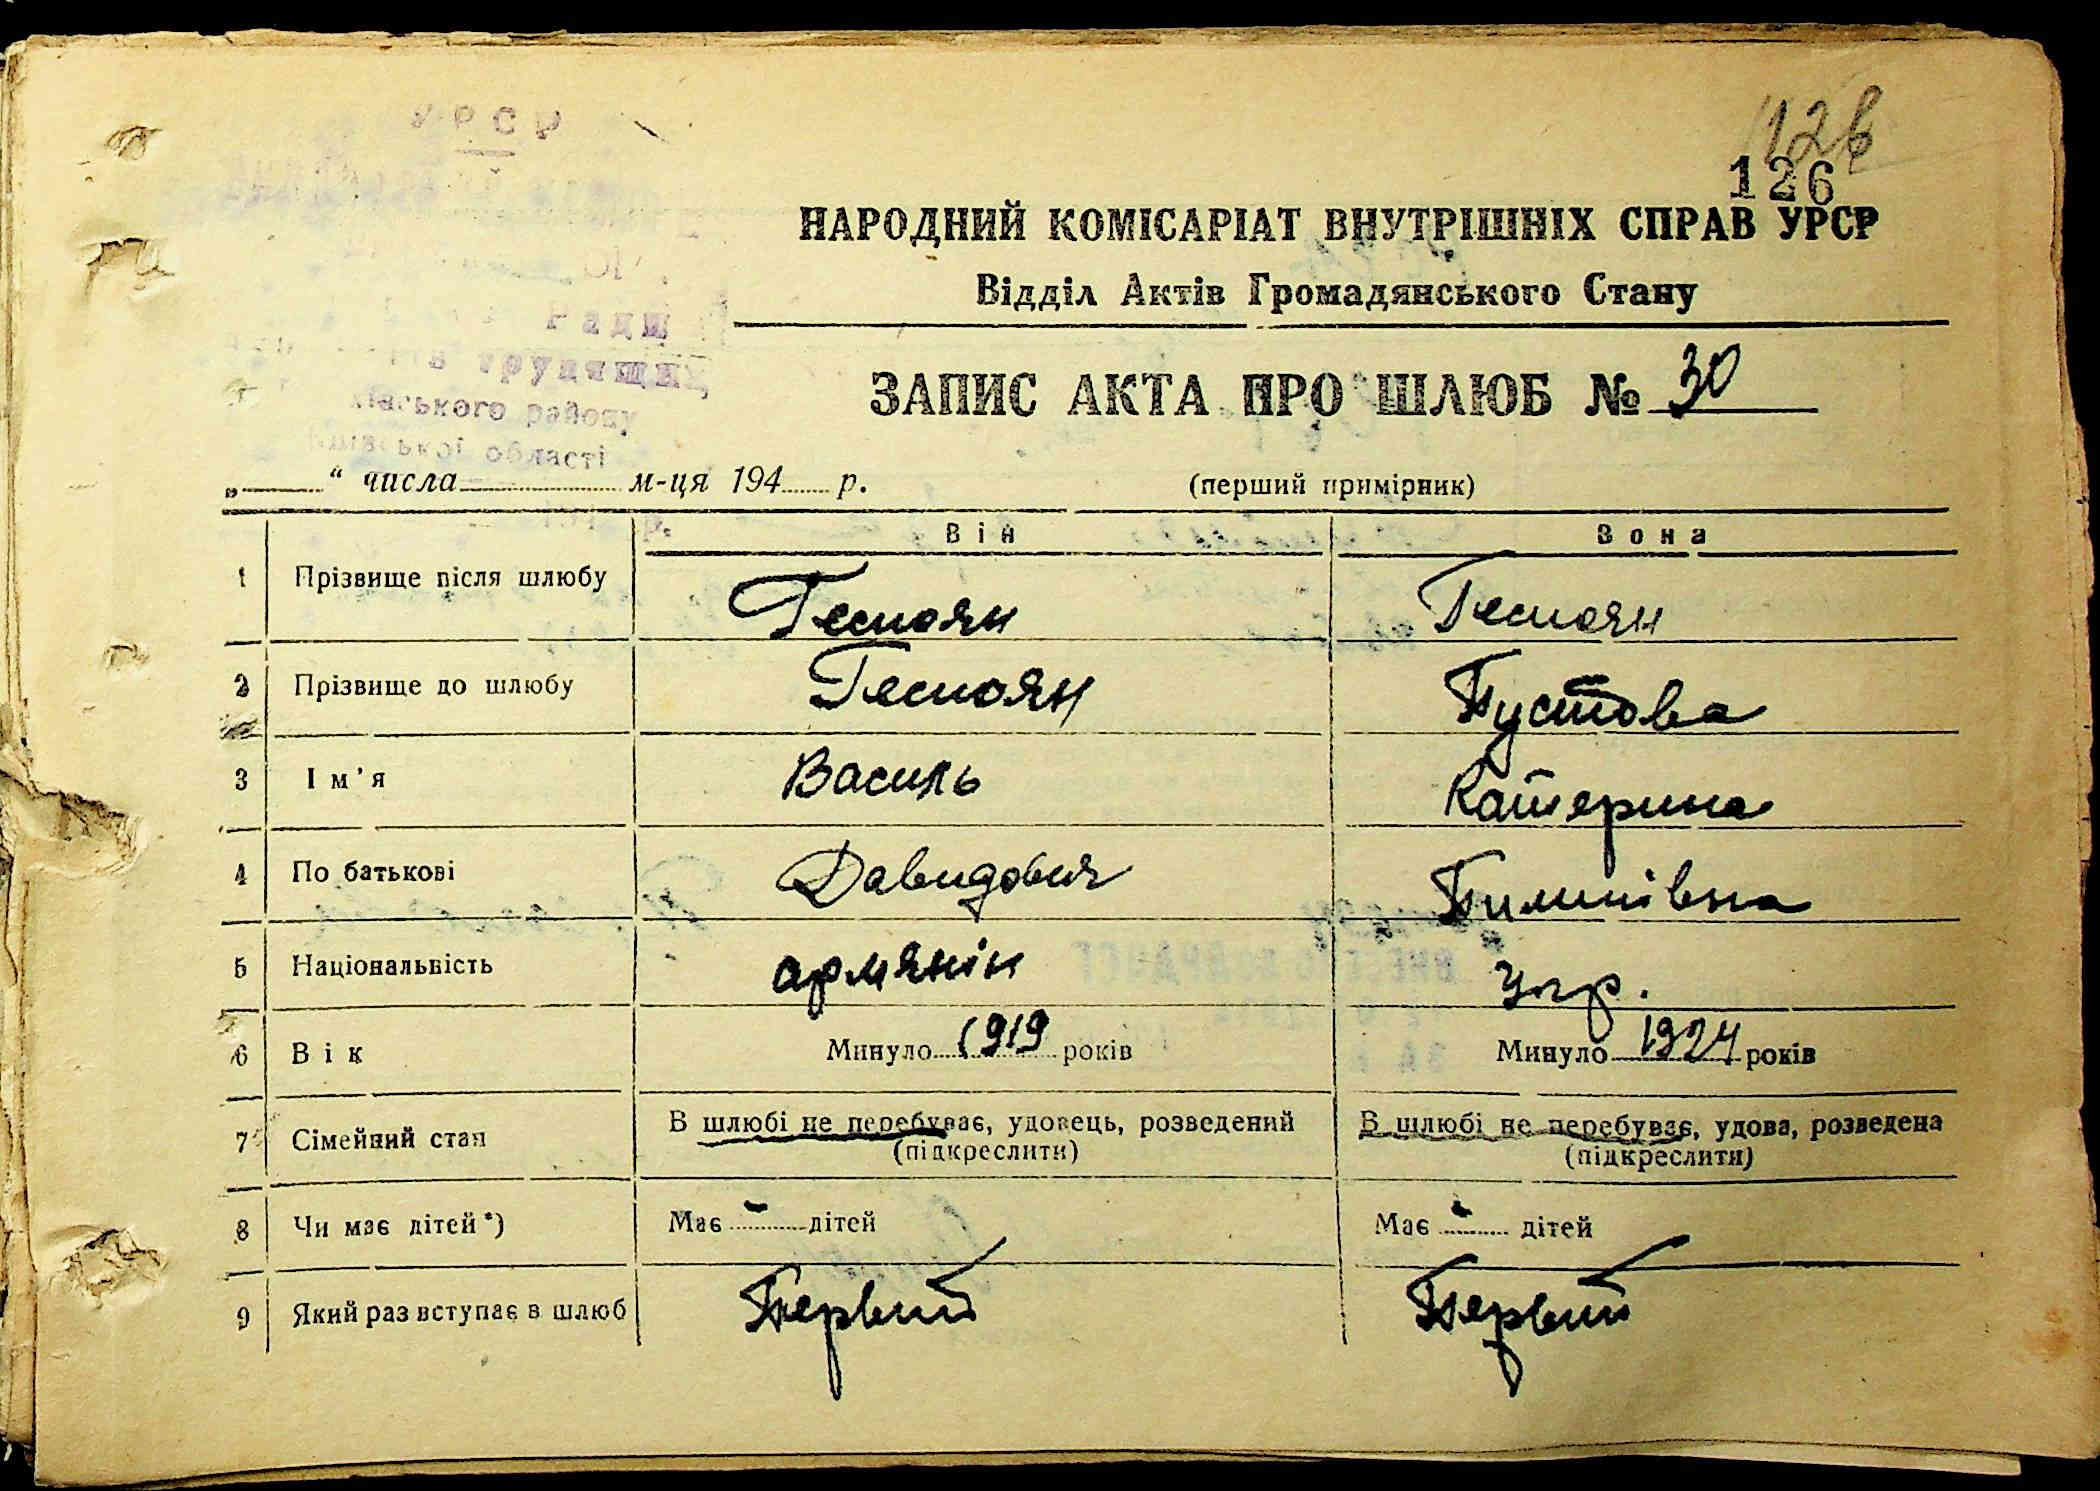 126
126
НАРОДНИЙ КОМІСАРІАТ ВНУТРІШНІХ СПРАВ УРСР
Відділ Актів Громадянського Стану
Ради
трудящих
району
області
ЗАПИС АКТА ПРО ШЛЮБ № 30
„ “ числа м-ця 194 р. (перший примірник)
Він Вона
1 Прізвище після шлюбу Геспоян Геспоян
2 Прізвище до шлюбу Геспоян Пустова
3 Ім’я Василь Катерина
4 По батькові Давидович Пилипівна
5 Національність армянін Укр.
6 Вік Минуло 1919 років Минуло 1924 років
7 Сімейний стан В шлюбі не перебуває, удовець, розведений В шлюбі не перебуває, удова, розведена
(підкреслити) (підкреслити)
8 Чи має дітей*) Має - дітей Має - дітей
9 Який раз вступає в шлюб Первий Первий